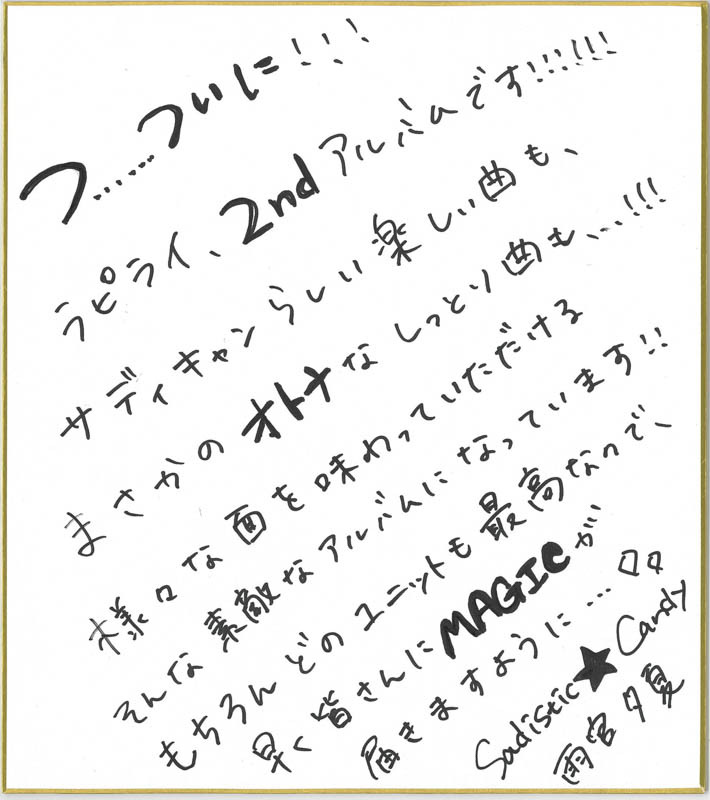 つ……ついに!!!
ラピライ、2ndアルバムです!!!!!!
サディキャンらしい楽しい曲も、
まさかのオトナなしっとり曲も、…!!!
様々な面を味わっていただける
そんな素敵なアルバムになっています!!
もちろんどのユニットも最高なので、
早く皆さんにMAGICが
届きますように…
Sadistic★Candy
雨宮夕夏